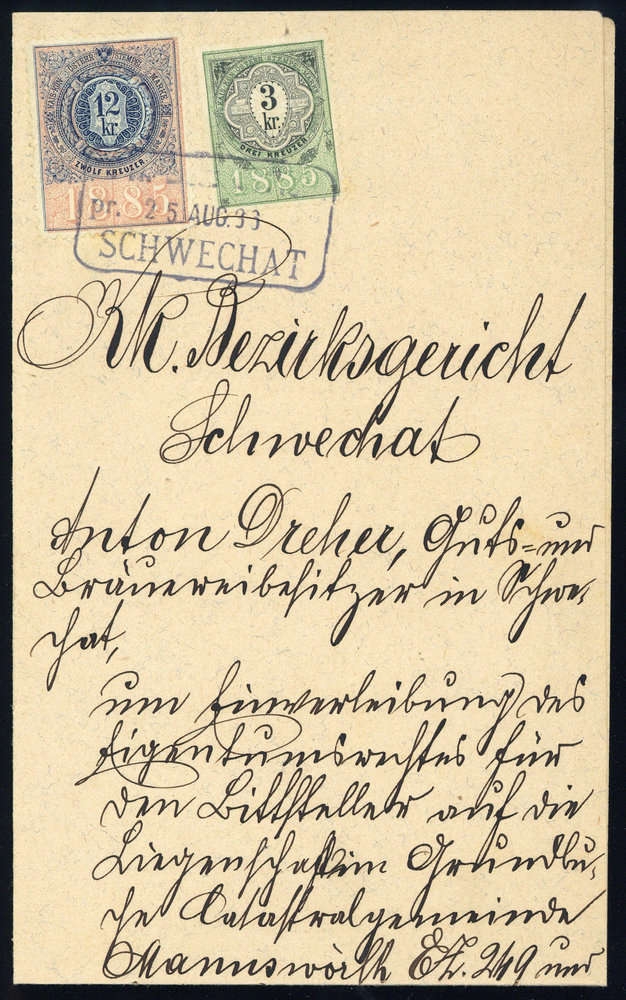 12
kr.
ZWÖLF KREUZER
1885
3
kr.
DREI KREUZER
1885
pr. 25 AUG. 33
SCHWECHAT
Kk. Bezirksgericht
Schwechat
Anton Dreher, Guts- und
Bräuereibesitzer in Schwe-
chat,
um Einverleibung des
Eigentumsrechtes für
den Bittsteller auf die
Liegenschaft im Grundbu-
che Catastralgemeinde
Mannswörth EZ. 249 und